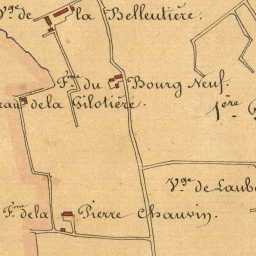 Vge de la Belleutière.
Fme du Bourg Neuf.
eau de la Gilotière.
1ère
Vge de Laube
Fme de la Pierre Chauvin.